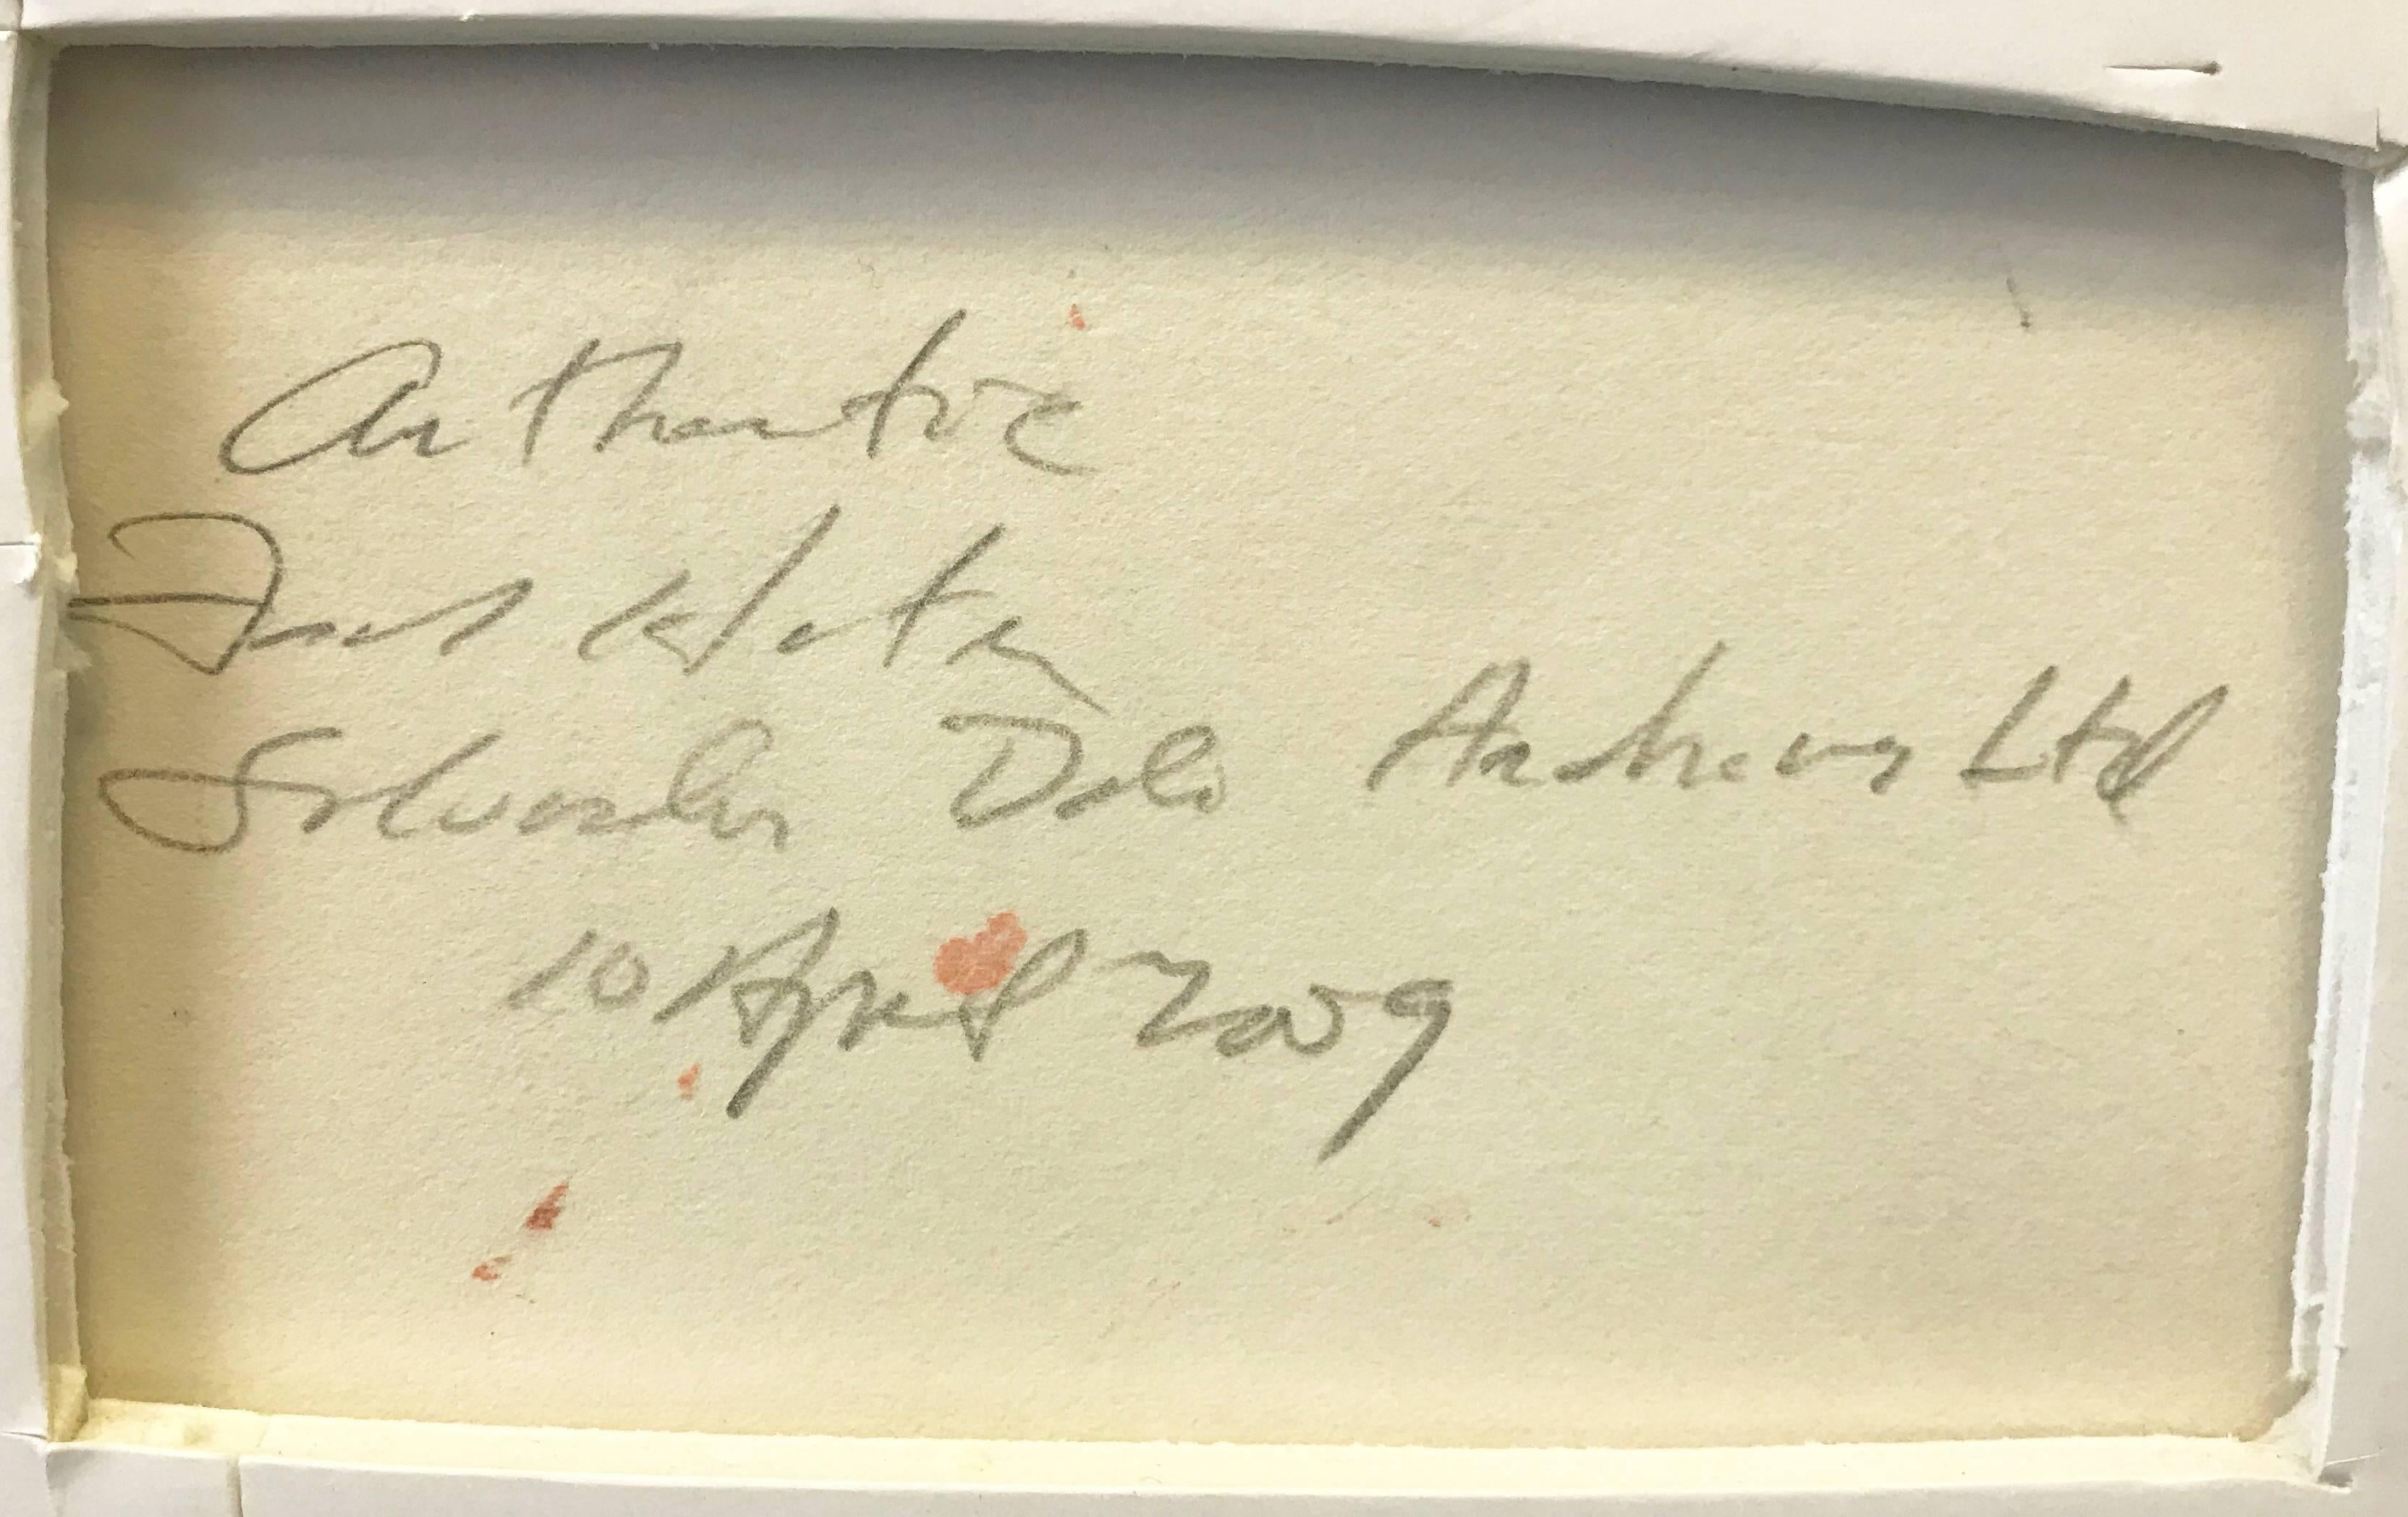 Authentic
Frank Hunter
Salvador Dali Archives Ltd
10 April 2009